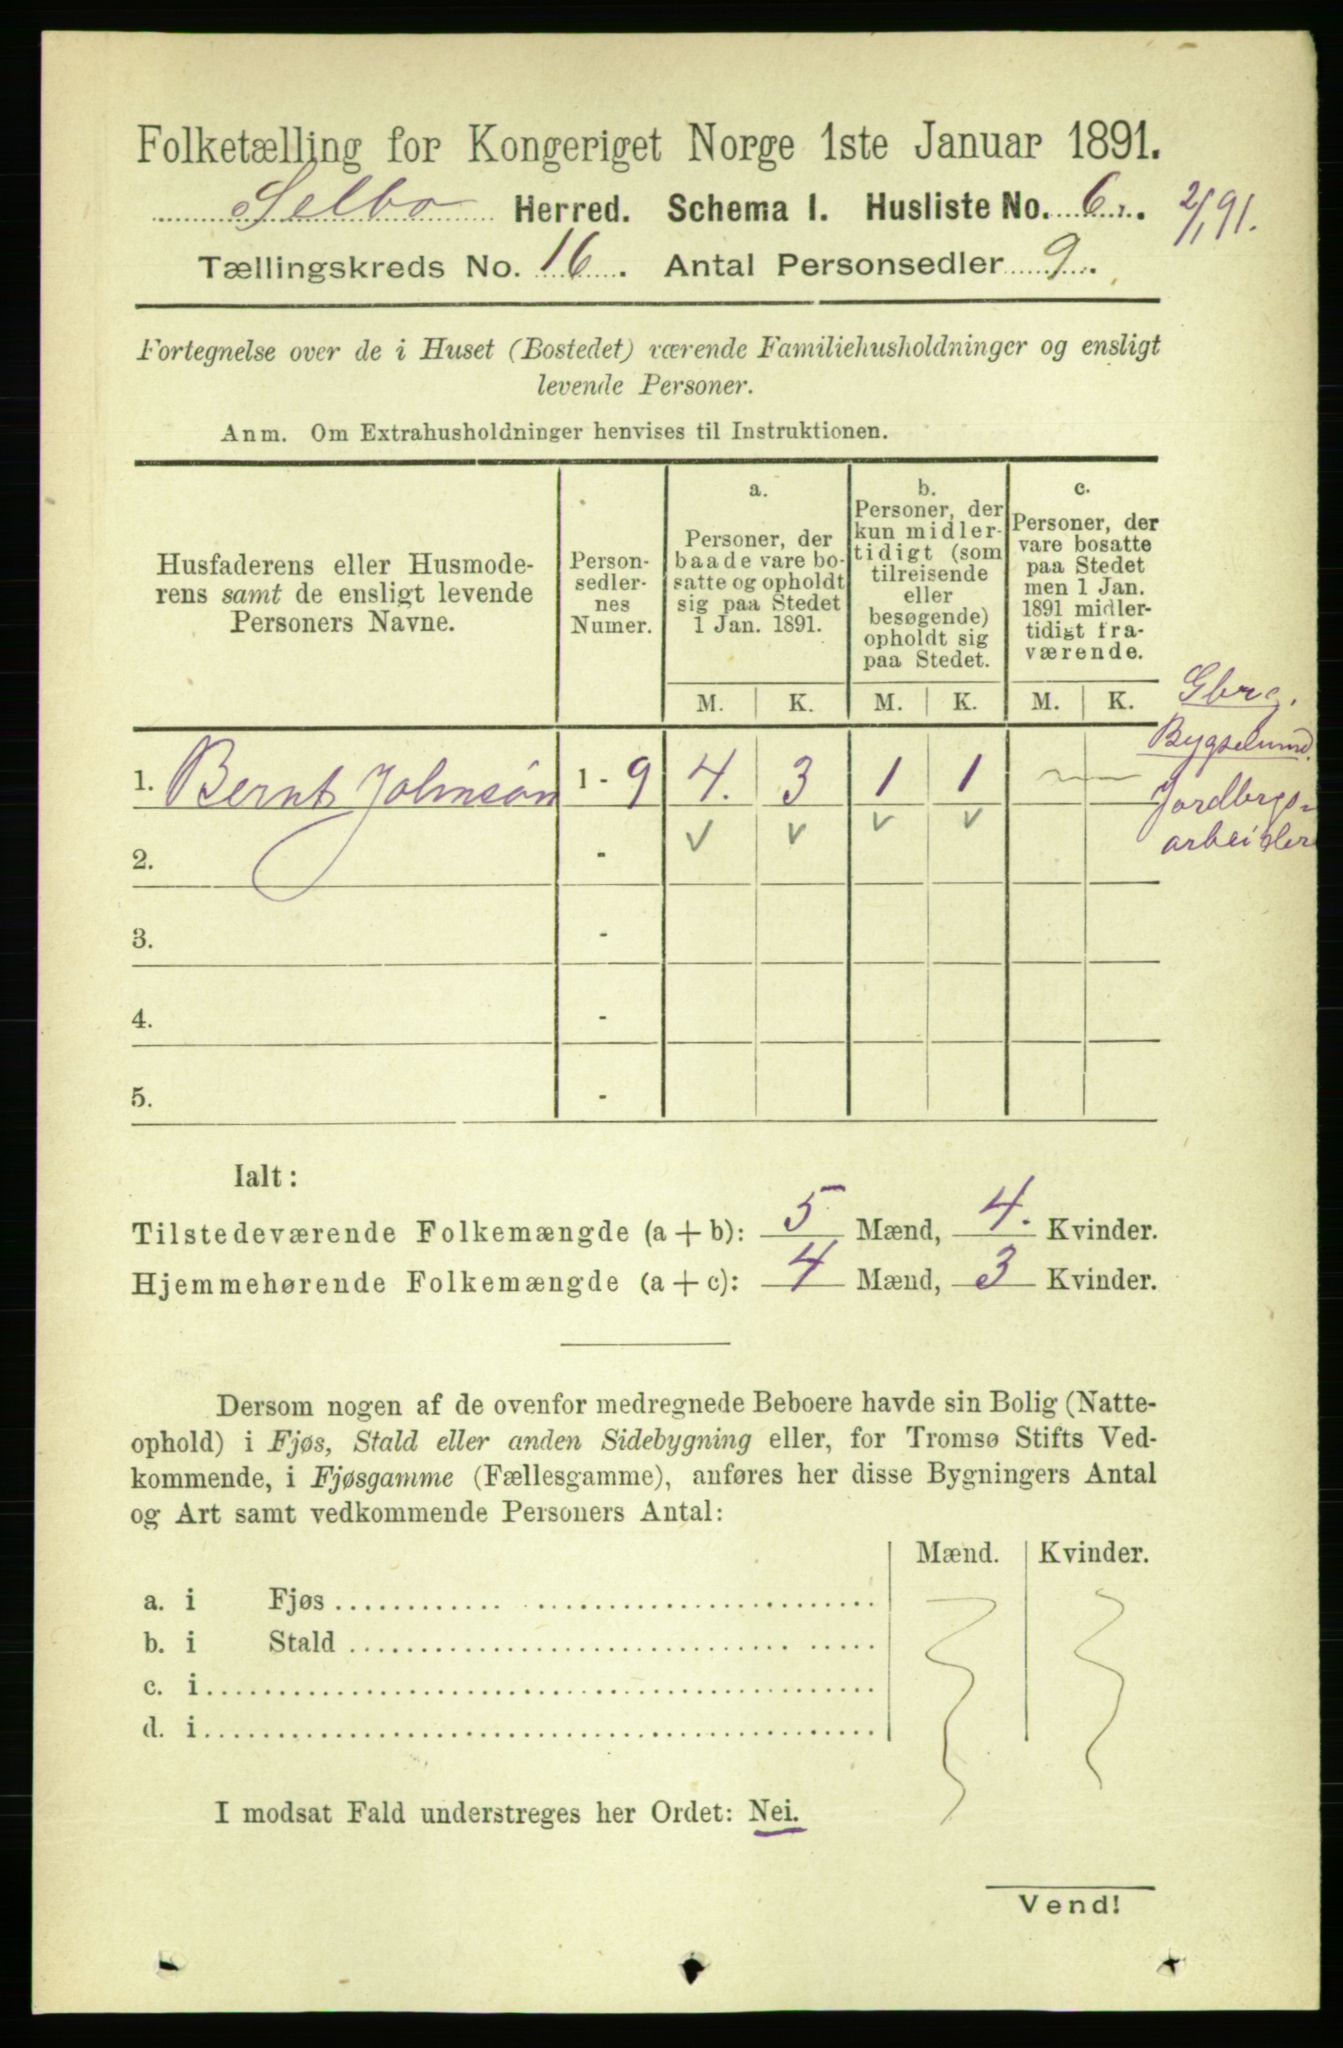 Folketælling for Kongeriget Norge 1ste Januar 1891.
Selbo Herred. Schema I. Husliste No. 6. 2/1 91.
Tællingskreds No. 16. Antal Personsedler 9.
Fortegnelse over de i Huset (Bostedet) værende Familiehusholdninger og ensligt
levende Personer.
Anm. Om Extrahusholdninger henvises til Instruktionen.
Husfaderens eller Husmode-
rens samt de ensligt levende
Personers Navne.
Person-
sedler-
nes
Numer.
a.
Personer, der
baade vare bo-
satte og opholdt
sig paa Stedet
1 Jan. 1891.
b.
Personer, der
kun midler-
tidigt (som
tilreisende
eller
besøgende)
opholdt sig
paa Stedet.
c.
Personer, der
vare bosatte
paa Stedet
men 1 Jan.
1891 midler-
tidigt fra-
værende.
M. K. M. K. M. K.
Gbrg.
Bygselmand.
Jordbrugs-
arbeider
1. Bernt Johnsön 1 - 9 4. 3 1 1
2. -
3. -
4. -
5. -
Ialt:
Tilstedeværende Folkemængde (a + b): 5 Mænd, 4. Kvinder.
Hjemmehørende Folkemængde (a + c): 4 Mænd, 3 Kvinder.
Dersom nogen af de ovenfor medregnede Beboere havde sin Bolig (Natte-
ophold) i Fjøs, Stald eller anden Sidebygning eller, for Tromsø Stifts Ved-
kommende, i Fjøsgamme (Fællesgamme), anføres her disse Bygningers Antal
og Art samt vedkommende Personers Antal:
Mænd. Kvinder.
a. i Fjøs
b. i Stald
c. i
d. i
I modsat Fald understreges her Ordet: Nei.
Vend!